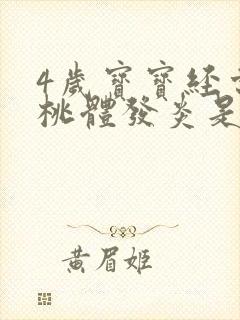 4歲寶寶經
桃體發炎是
黃眉姬